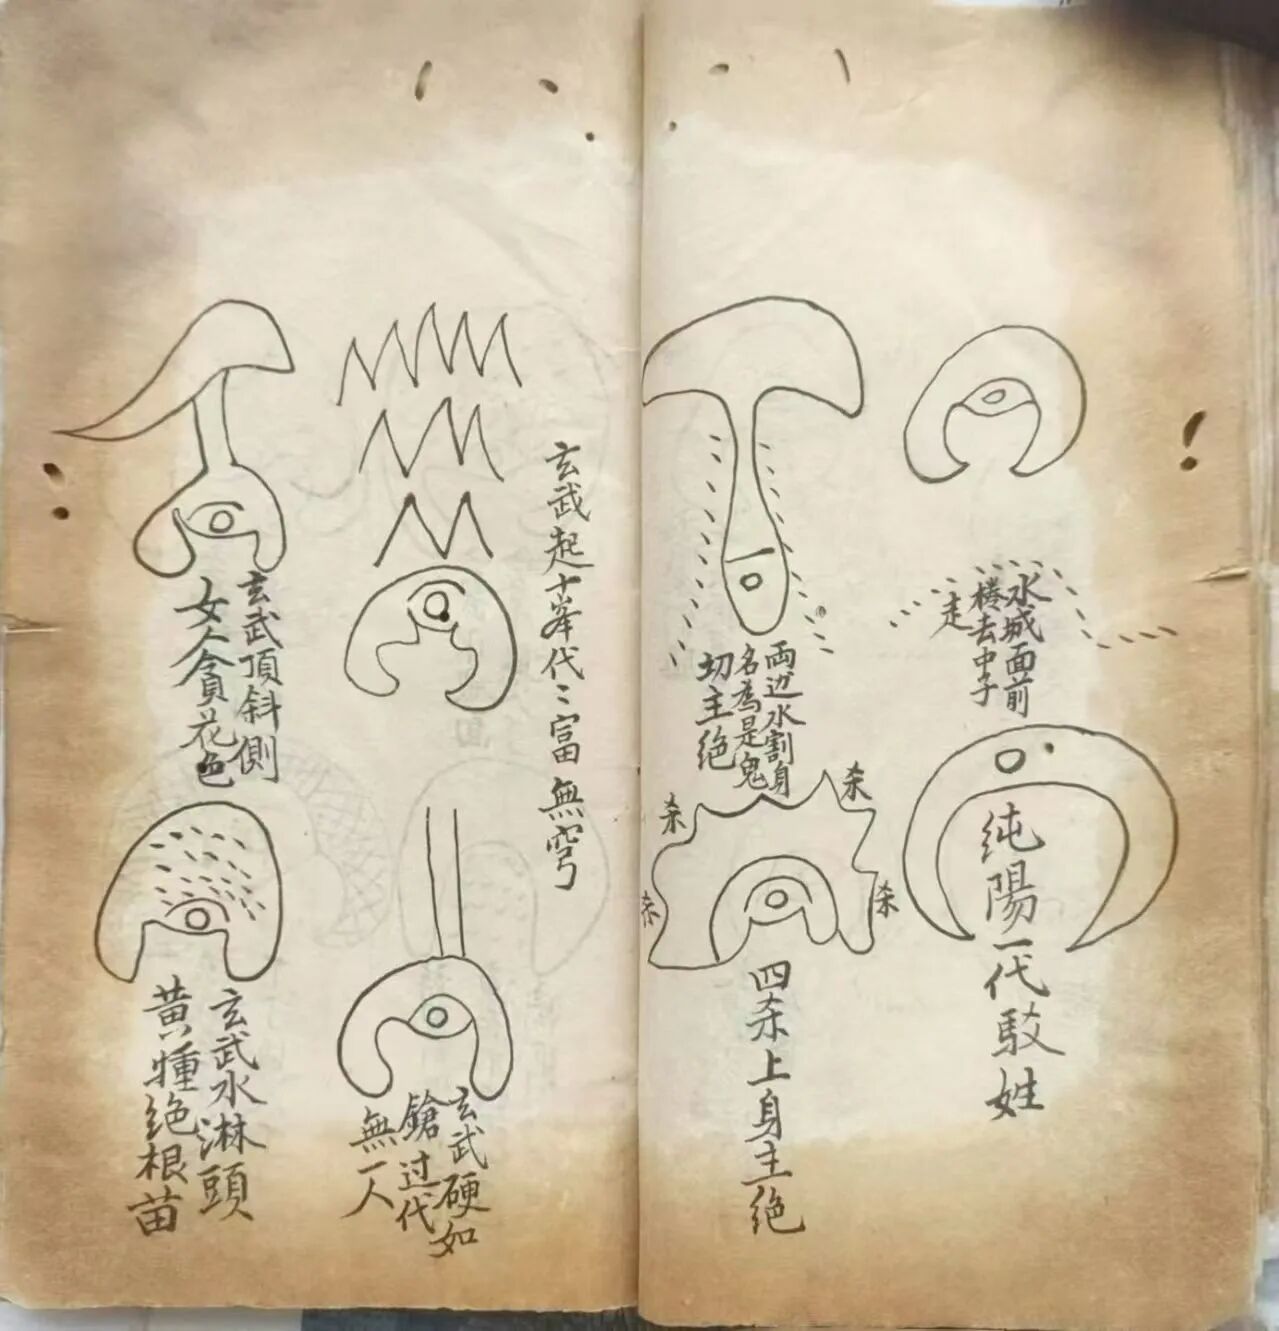 水城面前
捲去中子
走
純陽一代駁姓
両边水割身
名為是鬼
切主绝
杀
杀
杀
杀
四杀上身主绝
玄武起十峯代〻富無穹
玄武硬如
鎗过代
無一人
玄武頂斜側
女人貪花色
玄武水淋頭
黄腫绝根苗